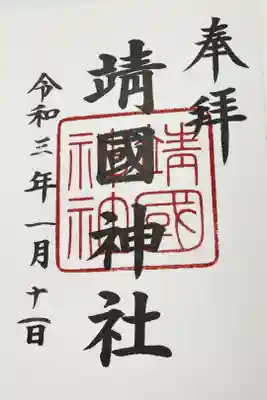 奉拝
靖國神社
靖國神社
令和三年一月十一日